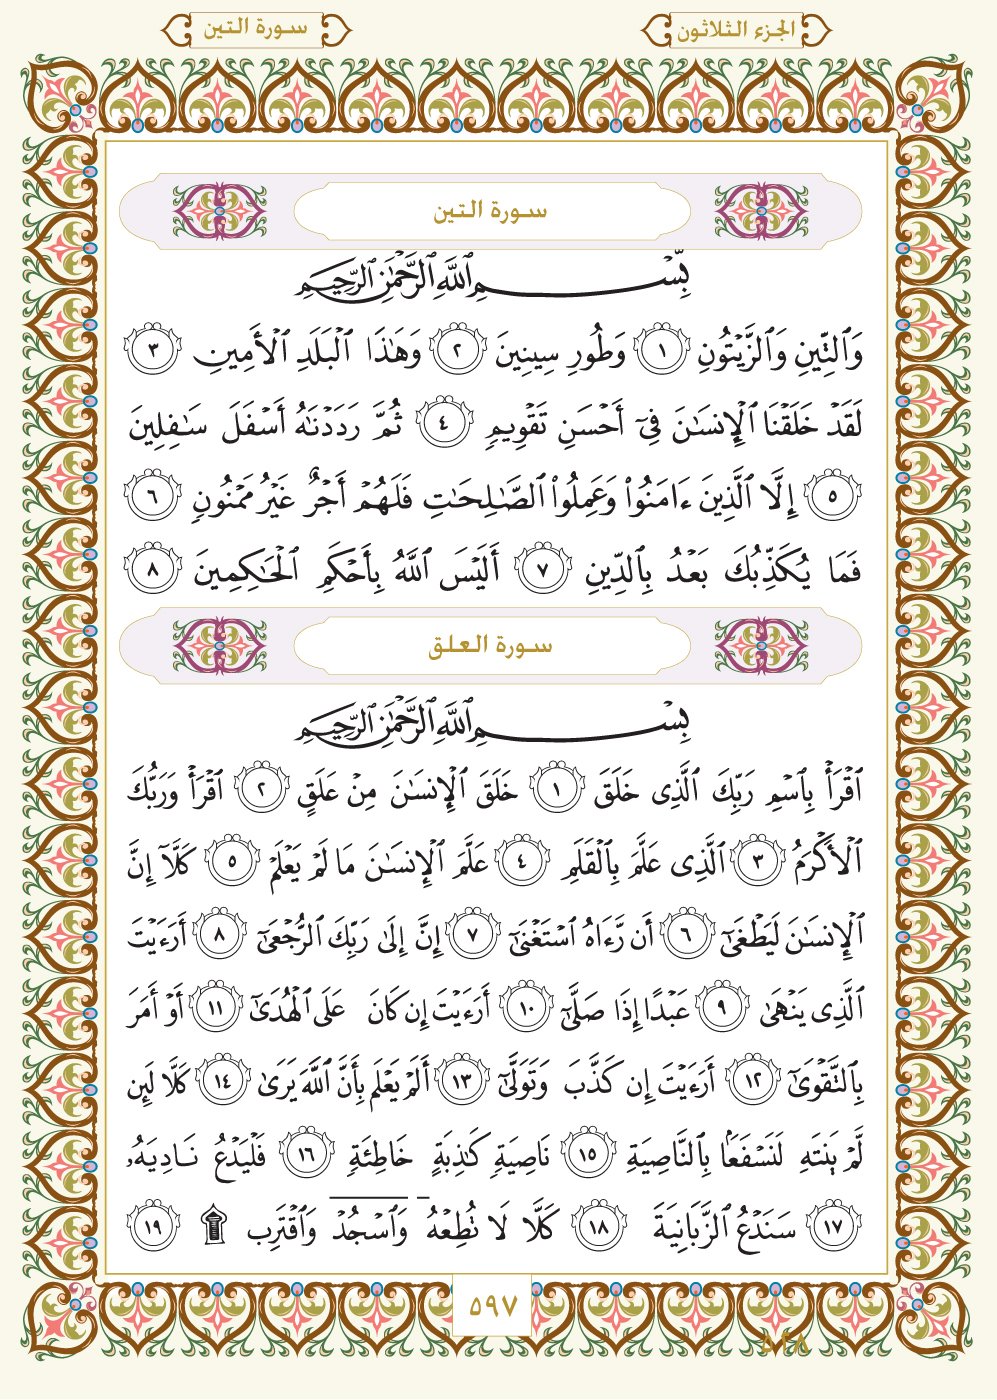 الجزء الثلاثون
سورة التين
سورة التين
بِّسْمِ ٱللَّهِ ٱلرَّحْمَٰنِ ٱلرَّحِيمِ
وَٱلتِّينِ وَٱلزَّيْتُونِ ١ وَطُورِ سِينِينَ ٢ وَهَٰذَا ٱلْبَلَدِ ٱلْأَمِينِ ٣
لَقَدْ خَلَقْنَا ٱلْإِنسَٰنَ فِىٓ أَحْسَنِ تَقْوِيمٍ ٤ ثُمَّ رَدَدْنَٰهُ أَسْفَلَ سَٰفِلِينَ
٥ إِلَّا ٱلَّذِينَ ءَامَنُوا۟ وَعَمِلُوا۟ ٱلصَّٰلِحَٰتِ فَلَهُمْ أَجْرٌ غَيْرُ مَمْنُونٍ ٦
فَمَا يُكَذِّبُكَ بَعْدُ بِٱلدِّينِ ٧ أَلَيْسَ ٱللَّهُ بِأَحْكَمِ ٱلْحَٰكِمِينَ ٨
سورة العلق
بِسْمِ ٱللَّهِ ٱلرَّحْمَٰنِ ٱلرَّحِيمِ
ٱقْرَأْ بِٱسْمِ رَبِّكَ ٱلَّذِى خَلَقَ ١ خَلَقَ ٱلْإِنسَٰنَ مِنْ عَلَقٍ ٢ ٱقْرَأْ وَرَبُّكَ
ٱلْأَكْرَمُ ٣ ٱلَّذِى عَلَّمَ بِٱلْقَلَمِ ٤ عَلَّمَ ٱلْإِنسَٰنَ مَا لَمْ يَعْلَمْ ٥ كَلَّآ إِنَّ
ٱلْإِنسَٰنَ لَيَطْغَىٰٓ ٦ أَن رَّءَاهُ ٱسْتَغْنَىٰٓ ٧ إِنَّ إِلَىٰ رَبِّكَ ٱلرُّجْعَىٰٓ ٨ أَرَءَيْتَ
ٱلَّذِى يَنْهَىٰ ٩ عَبْدًا إِذَا صَلَّىٰٓ ١٠ أَرَءَيْتَ إِن كَانَ عَلَى ٱلْهُدَىٰٓ ١١ أَوْ أَمَرَ
بِٱلتَّقْوَىٰٓ ١٢ أَرَءَيْتَ إِن كَذَّبَ وَتَوَلَّىٰٓ ١٣ أَلَمْ يَعْلَم بِأَنَّ ٱللَّهَ يَرَىٰ ١٤ كَلَّا لَئِن
لَّمْ يَنتَهِ لَنَسْفَعًۢا بِٱلنَّاصِيَةِ ١٥ نَاصِيَةٍ كَٰذِبَةٍ خَاطِئَةٍ ١٦ فَلْيَدْعُ نَادِيَهُۥ
١٧ سَنَدْعُ ٱلزَّبَانِيَةَ ١٨ كَلَّا لَا تُطِعْهُ وَٱسْجُدْ وَٱقْتَرِب ۩ ١٩
٥٩٧